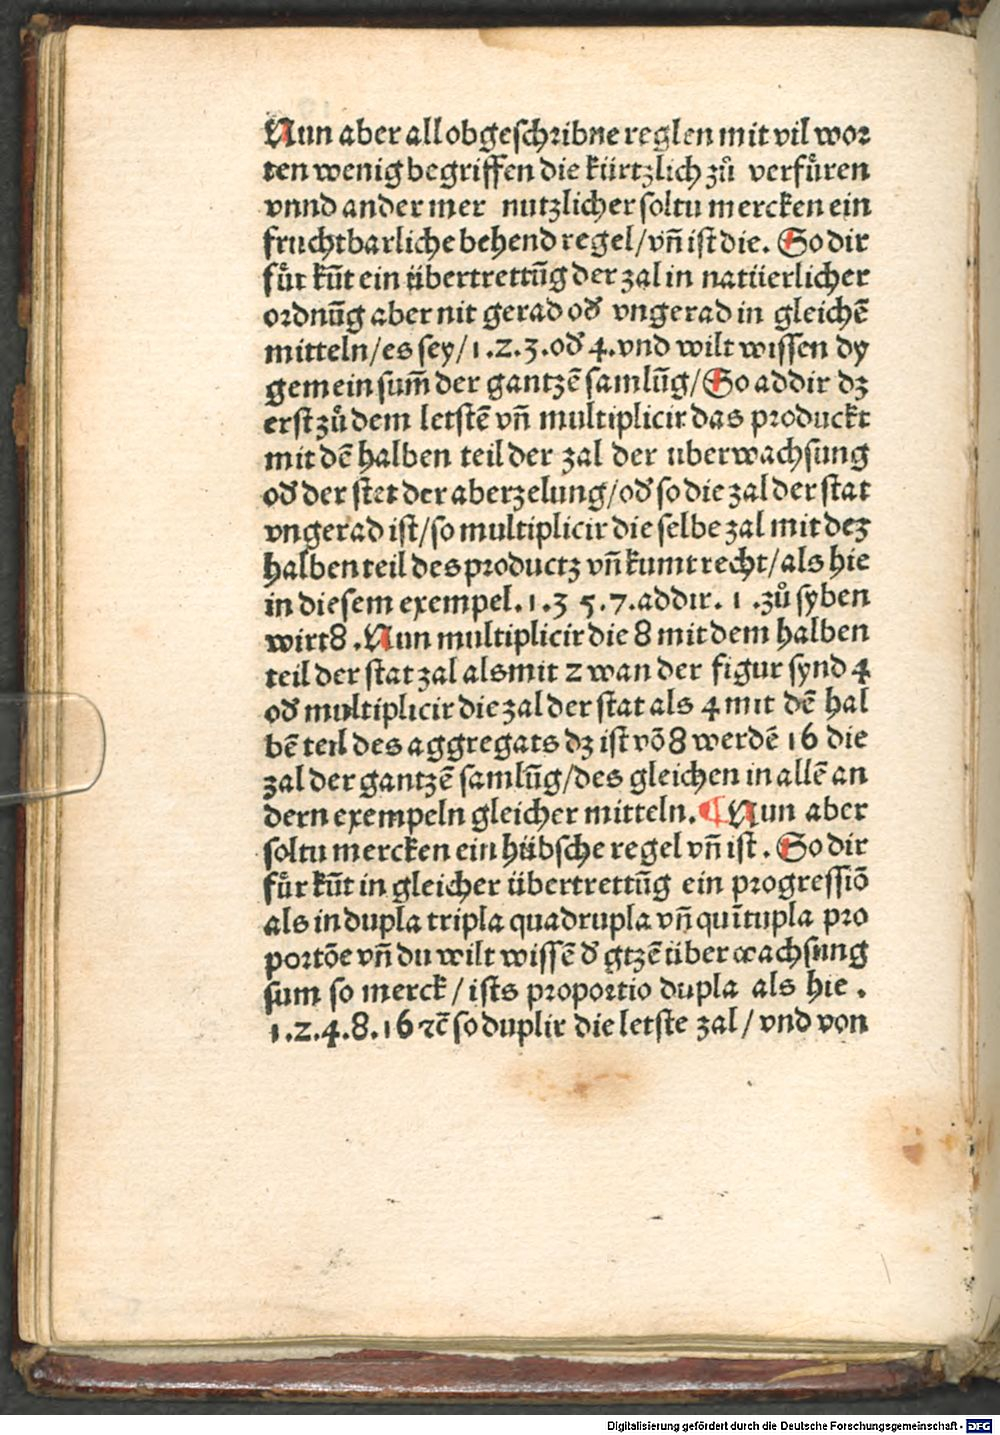 Nun aber all obgeschribne reglen mit vil wor
ten wenig begriffen die kürtzlich zů verfůren
vnnd ander mer nutzlicher soltu mercken ein
fruchtbarliche behend regel/vñ ist die. So dir
fůr kũt ein übertrettũg der zal in natüerlicher
ordnũg aber nit gerad oď vngerad in gleichẽ
mitteln/es sey/1.2.3.oď 4.vnd wilt wissen dy
gemein sum̃ der gantzẽ samlũg/So addir dz
erst zů dem letstẽ vñ multiplicir das produckt
mit dẽ halben teil der zal der uberwachsung
oď der stet der aberzelung/oď so die zal der stat
vngerad ist/so multiplicir die selbe zal mit dez
halben teil des productz vñ kumt recht/als hie
in diesem exempel.1.3 5.7.addir. 1 .zů syben
wirt8.Nun multiplicir die 8 mit dem halben
teil der stat zal als mit 2 wan der figur synd 4
oď multiplicir die zal der stat als 4 mit dẽ hal
bẽ teil des aggregats dz ist võ 8 werdẽ 16 die
zal der gantzẽ samlũg/des gleichen in allẽ an
dern exempeln gleicher mitteln.¶Nun aber
soltu mercken ein hübsche regel vñ ist. So dir
fůr kũt in gleicher übertrettũg ein progressiõ
als in dupla tripla quadrupla vñ quĩtupla pro
portõe vñ du wilt wissẽ ď gtzẽ überwachsung
sum so merck/ists proportio dupla als hie.
1.2.4.8.16 ⁊c̃ so duplir die letste zal/vnd von
Digitalisierung gefördert durch die Deutsche Forschungsgemeinschaft - DFG